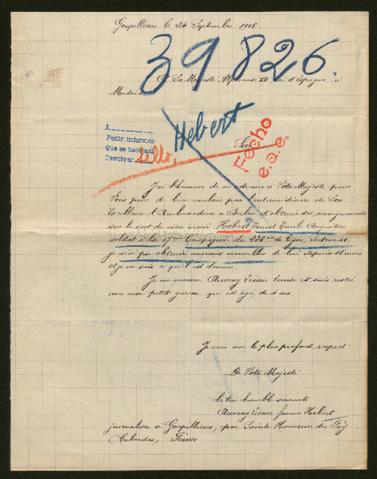 Goupillières le 24 Septembre 1916
39826
A Sa Majesté Alphonse XIII Roi d'Espagne à
Madrid
Hebert
A
Pedir informes
Que se hace así
Devolver
Fecho
e.a.e.
Sire
J'ai l'honneur de m'adresser à Votre Majesté pour
Vous prier de bien vouloir par l'intermédiaire de Son
Excellence l'Ambassadeur à Berlin d'obtenir des renseignements
sur le sort de mon mari Hebert Ernest Emile Augustin
soldat à la Compagnie du de ligne
Je n'ai pu obtenir aucunes nouvelles de lui depuis mois
et je ne sais ce qu'il est devenu.
Je me nomme Auvray et suis restée
avec mon petit garçon qui est âgé de ans
Je suis avec le plus profond respect
De Votre Majesté
la très humble servante
Auvray femme Hebert
journalière à Goupillières, par Sainte Honorine du Fay
(Calvados) France